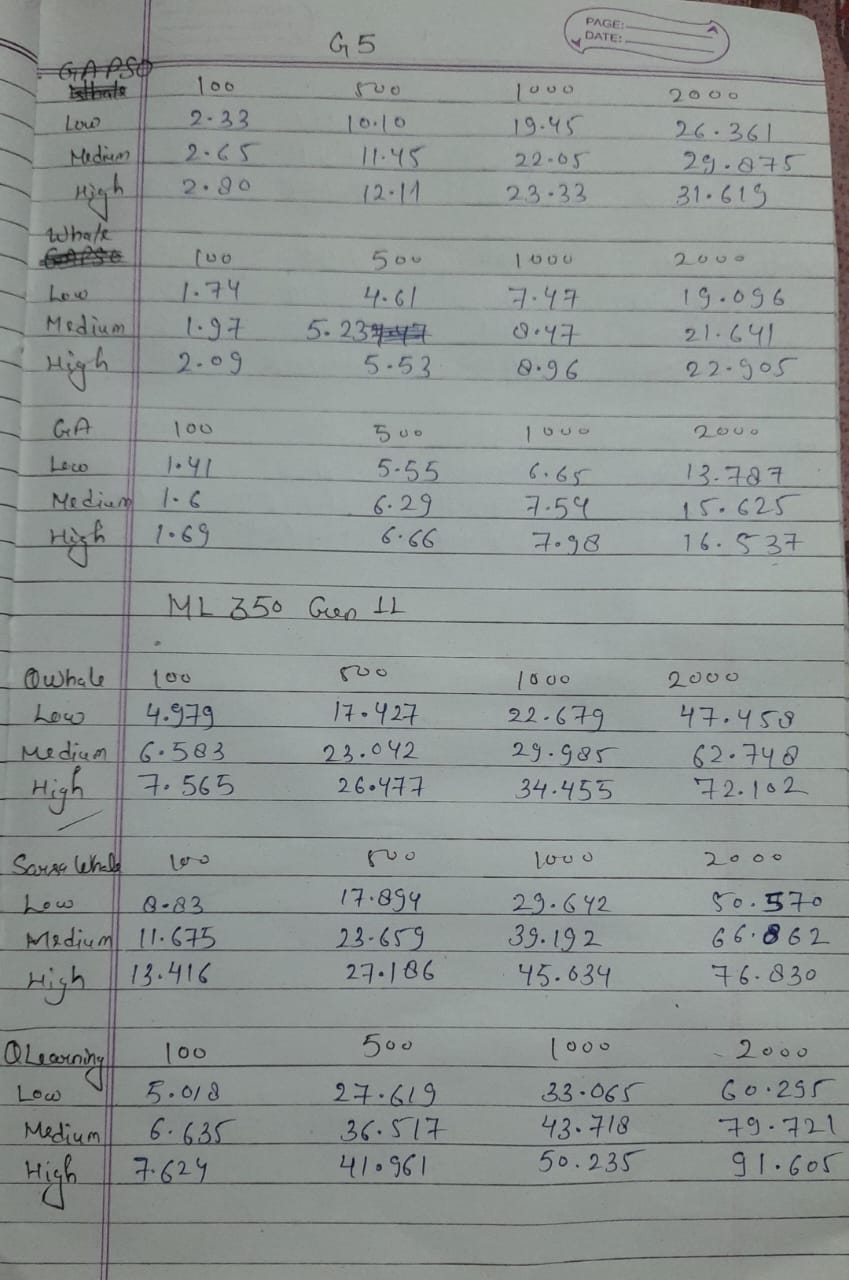 PAGE:
DATE:
G5
GAPSO
100 500 1000 2000
Low 2.33 10.10 19.45 26.361
Medium 2.65 11.45 22.05 29.875
High 2.80 12.11 23.33 31.619
Whale
100 500 1000 2000
Low 1.74 4.61 7.47 19.096
Medium 1.97 5.23 8.47 21.641
High 2.09 5.53 8.96 22.905
GA 100 500 1000 2000
Low 1.41 5.55 6.65 13.787
Medium 1.6 6.29 7.54 15.625
High 1.69 6.66 7.98 16.537
ML 350 Gen 11
QWhale 100 500 1000 2000
Low 4.979 17.427 22.679 47.458
Medium 6.583 23.042 29.985 62.748
High 7.565 26.477 34.455 72.102
Sarsa Whale 100 500 1000 2000
Low 8.83 17.894 29.642 50.570
Medium 11.675 23.659 39.192 66.862
High 13.416 27.186 45.034 76.830
QLearning 100 500 1000 2000
Low 5.018 27.619 33.065 60.295
Medium 6.635 36.517 43.718 79.721
High 7.624 41.961 50.235 91.605